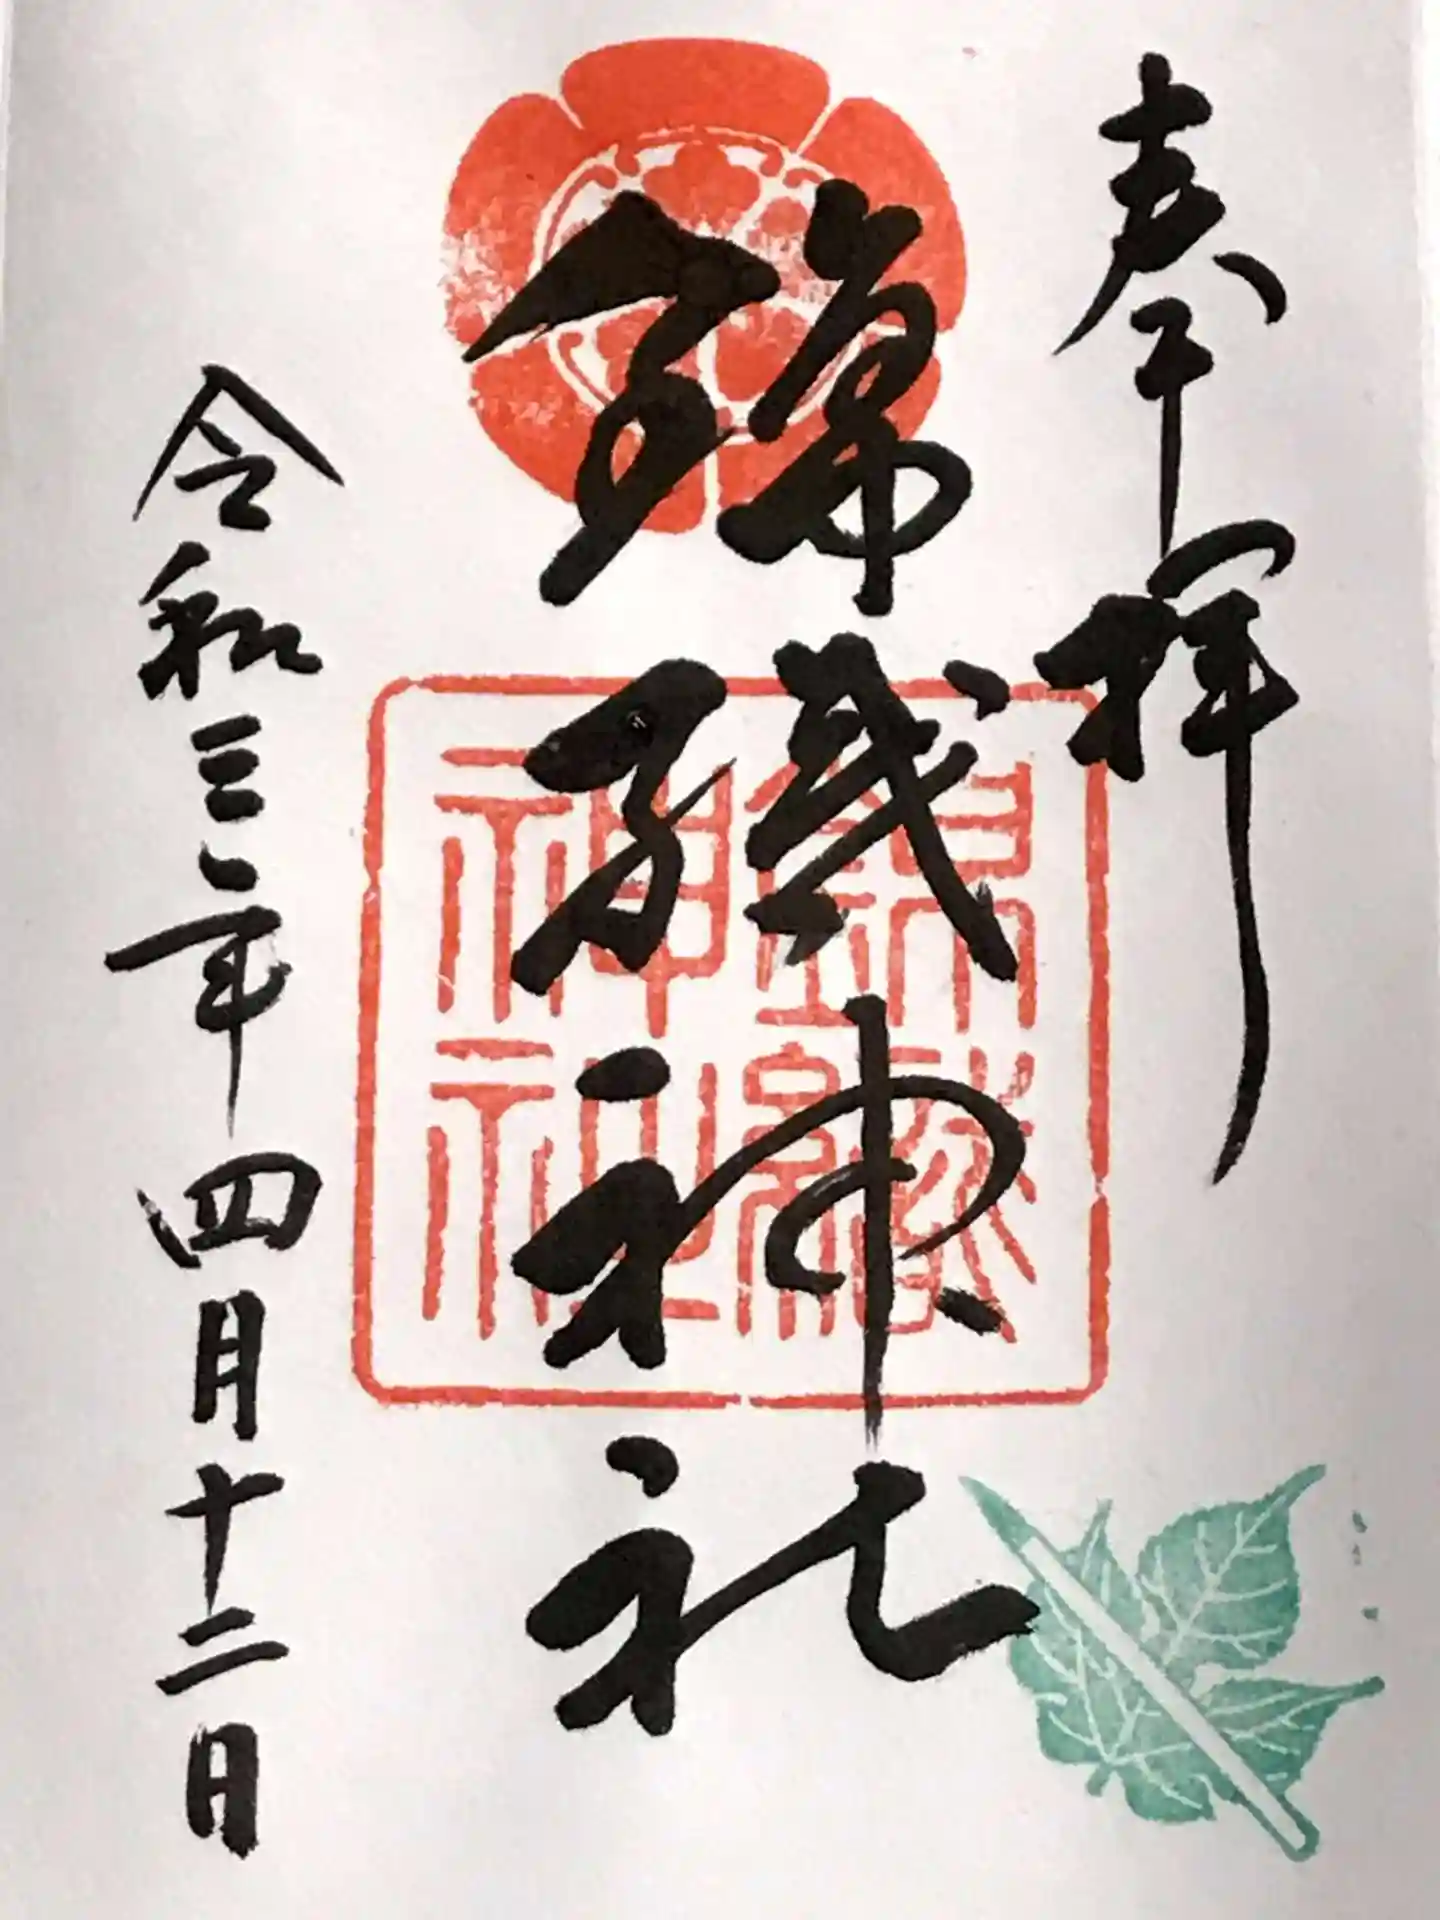 奉拝
錦織神社
錦織
神社
令和三年四月十二日